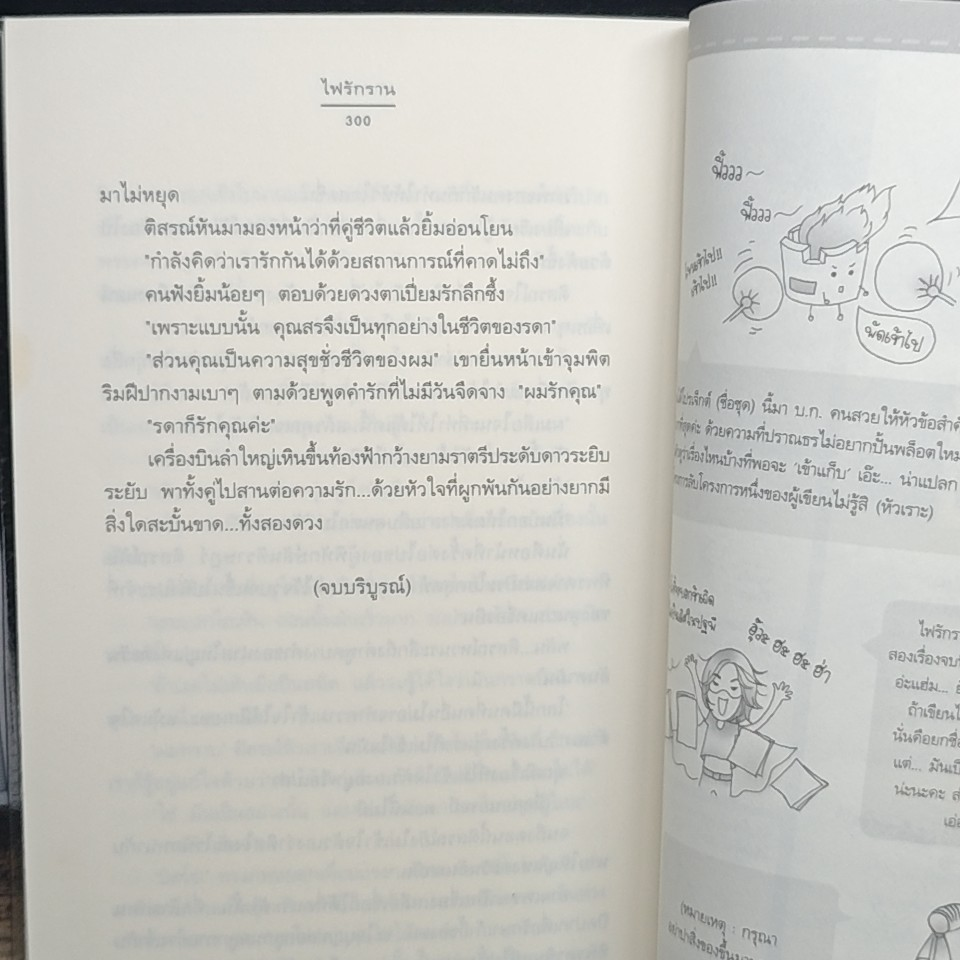 ไฟรักราน
300
มาไม่หยุด
ติสรณ์หันมามองหน้าว่าที่คู่ชีวิตแล้วยิ้มอ่อนโยน
"กำลังคิดว่าเรารักกันได้ด้วยสถานการณ์ที่คาดไม่ถึง"
คนฟังยิ้มน้อยๆ ตอบด้วยดวงตาเปี่ยมรักลึกซึ้ง
"เพราะแบบนั้น คุณสรจึงเป็นทุกอย่างในชีวิตของรดา"
"ส่วนคุณเป็นความสุขชั่วชีวิตของผม" เขายื่นหน้าเข้าจุมพิต
ริมฝีปากงามเบาๆ ตามด้วยพูดคำรักที่ไม่มีวันจืดจาง "ผมรักคุณ"
"รดาก็รักคุณค่ะ"
เครื่องบินลำใหญ่เหินขึ้นท้องฟ้ากว้างยามราตรีประดับดาวระยิบ
ระยับ พาทั้งคู่ไปสานต่อความรัก...ด้วยหัวใจที่ผูกพันกันอย่างยากมี
สิ่งใดสะบั้นขาด...ทั้งสองดวง
(จบบริบูรณ์)
ฟี้ววว~
ฟี้ววว~
เข้าไป!!
พัดเข้าไป
(ชื่อชุด) นี้มา บ.ก. คนสวยให้หัวข้อสำคั
ค่ะ ด้วยความที่ปราณธรไม่อยากปั้นพล็อตใหม
เรื่องไหนบ้างที่พอจะ 'เข้าแก๊บ' เอ๊ะ... น่าแปลก
โครงการหนึ่งของผู้เขียนไม่รู้สิ (หัวเราะ)
ไฟรักรา
สองเรื่องจบใ
อ่ะแฮ่ม...
ถ้าเขียนใ
นั่นคือยกชื่อ
แต่... มันเป็
น่ะนะคะ
(หมายเหตุ : กรุณา